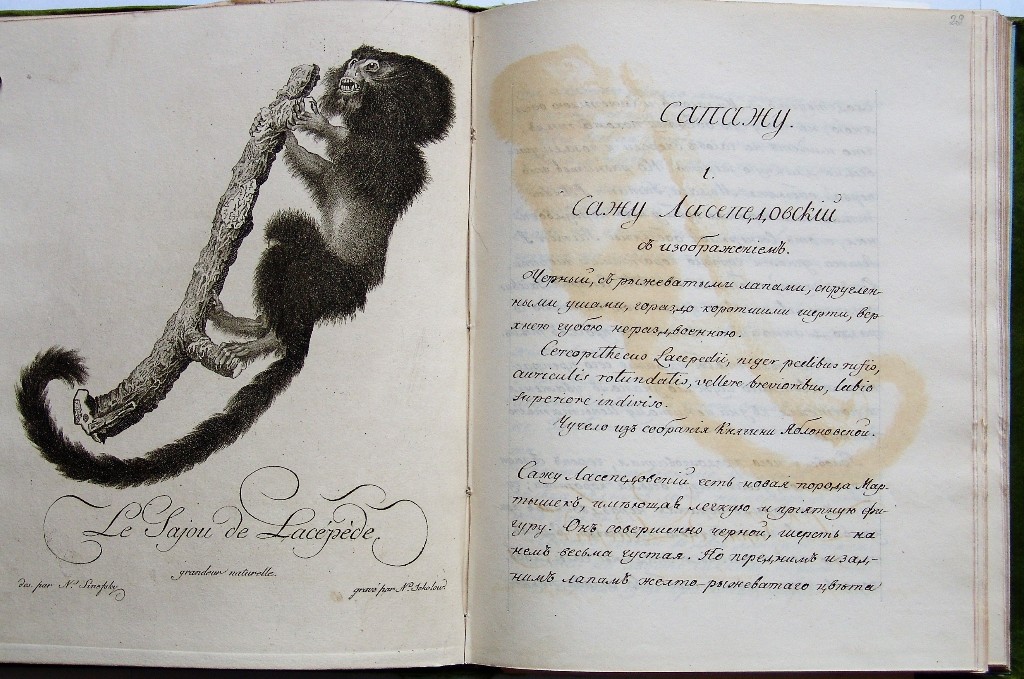 Le Sajou de Lacépède
grandeur naturelle.
des. par N.
gravé par N.
29
Сапажу.
1.
Сажу Ласепедовскій
съ изображеніемъ.
Черный, съ рыжеватыми лапами, округлен-
ными ушами, гораздо коротшими шерти, вер-
хнею губою нераздвоенною.
Cercopithecus Lacepedii, niger pedibus rufis,
auriculis rotundatis, vellere brevioribus, labio
superiore indiviso.
Чучело изъ собранія Княгини Яблоновской.
Сажу Ласепедовскій есть новая порода Мар-
тышекъ, имѣющая легкую и пріятную фи-
гуру. Онъ совершенно черной, шерсть на
немъ весьма густая. По переднимъ и зад-
нимъ лапамъ желто-рыжеватаго цвѣта